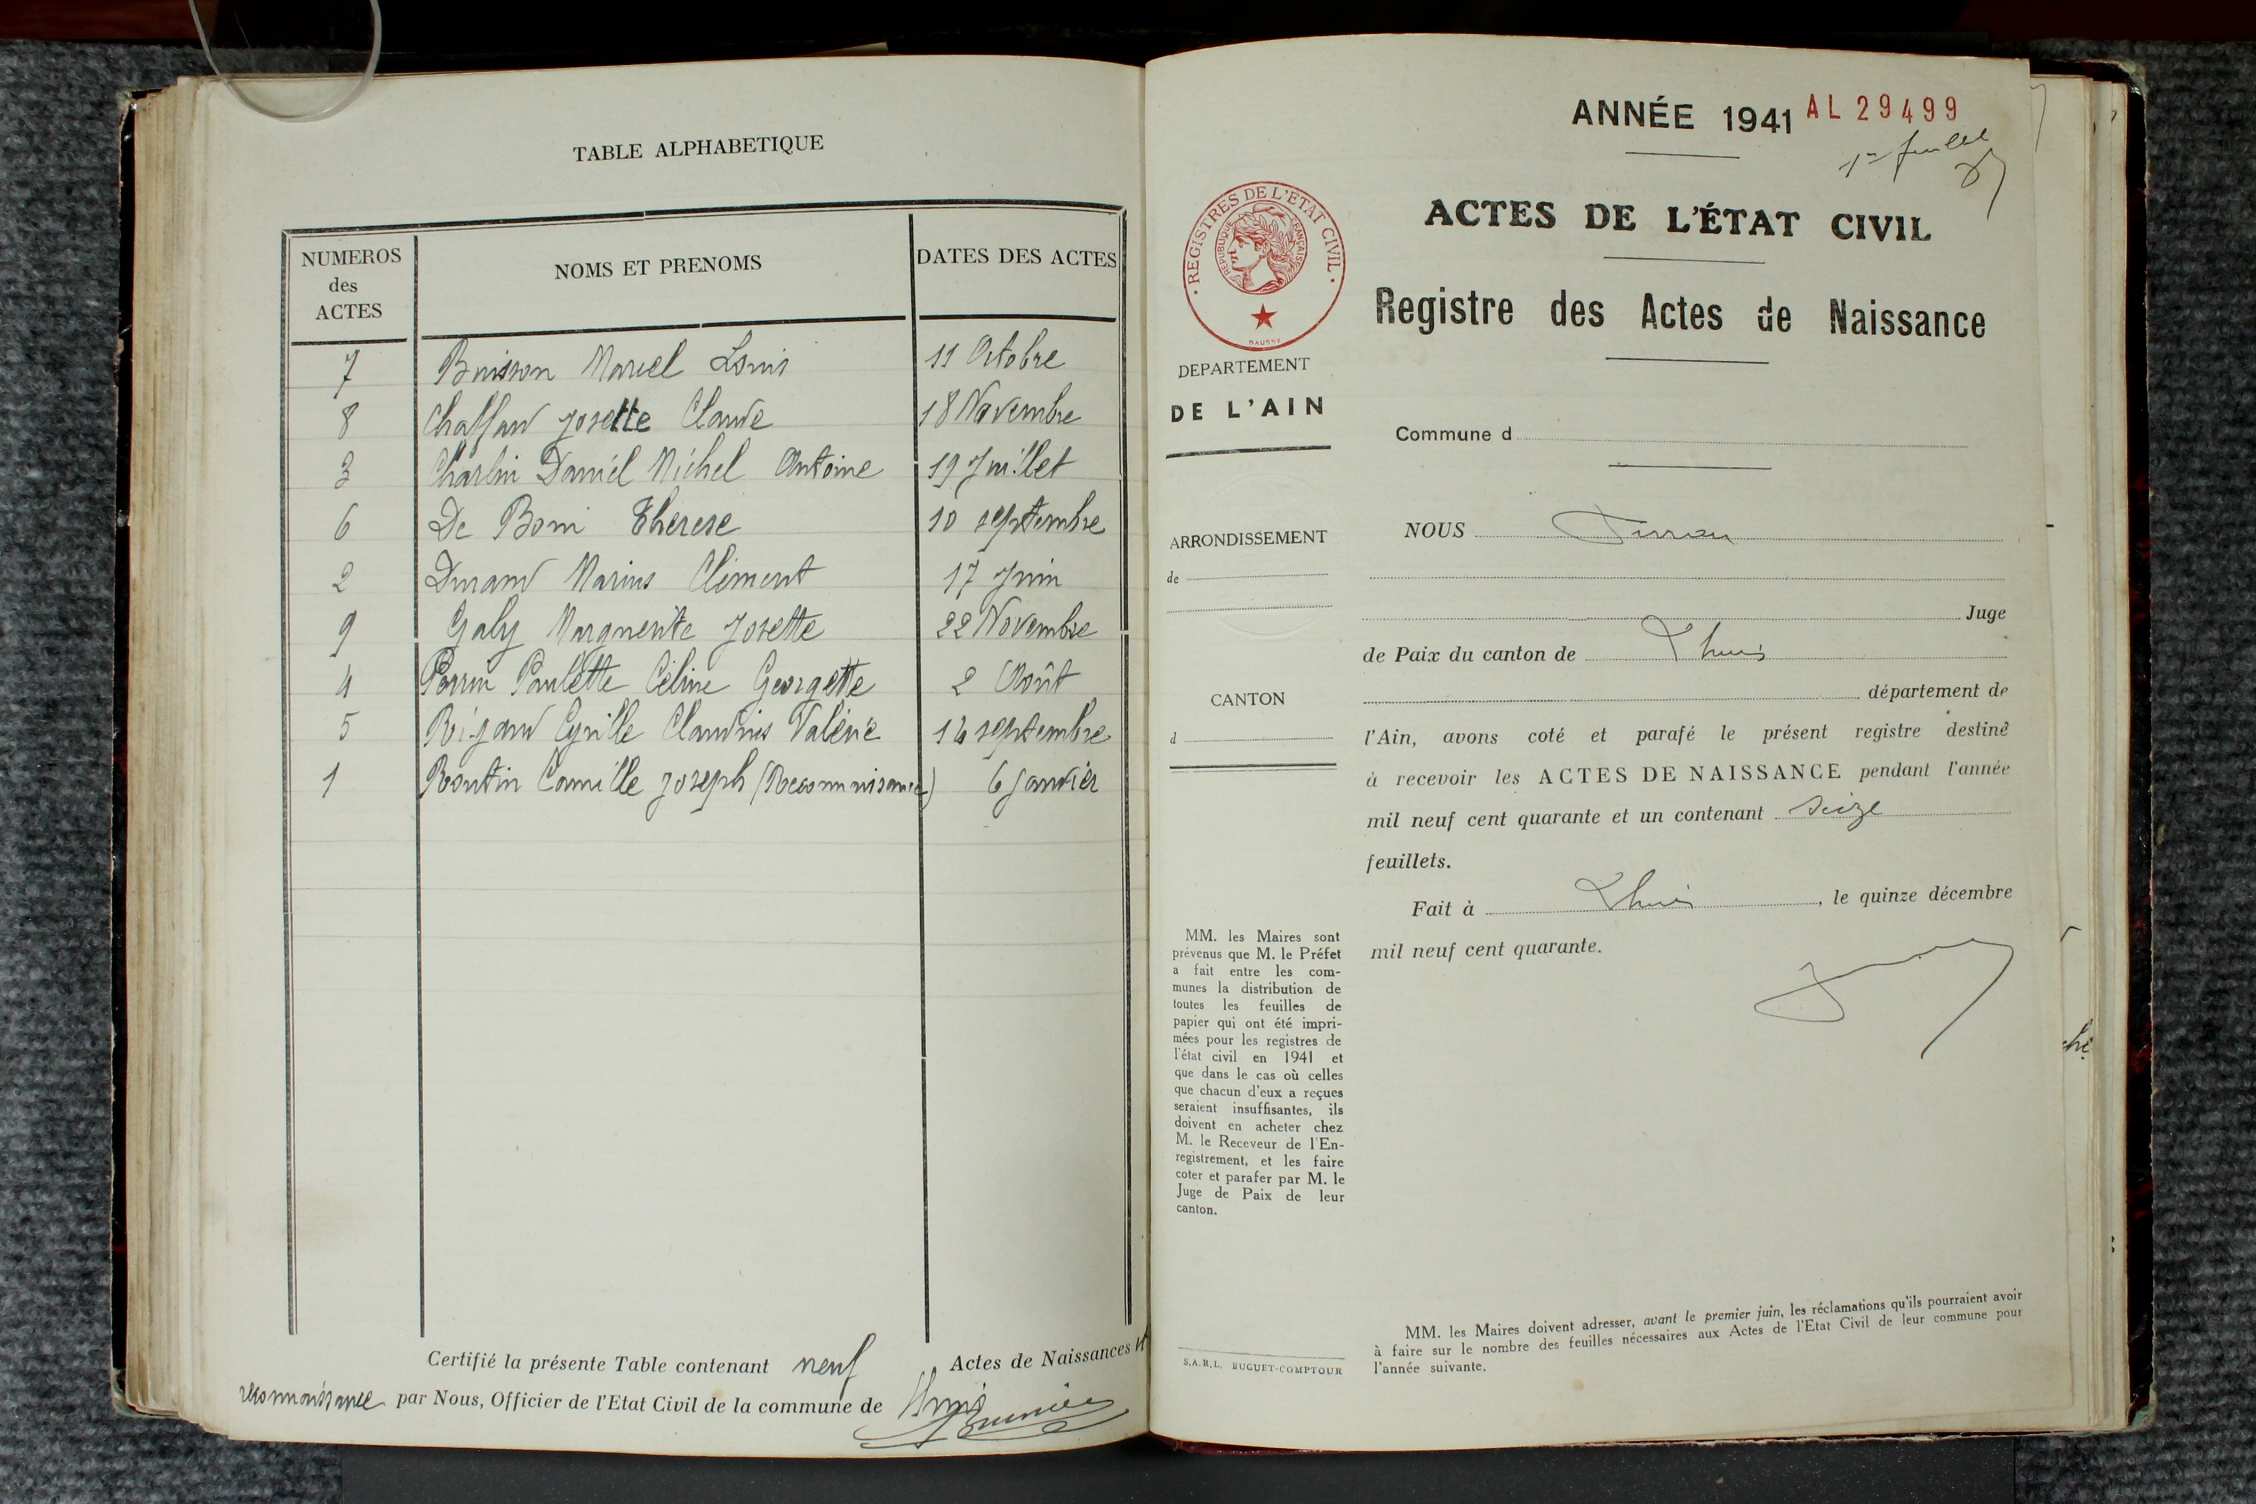 TABLE ALPHABETIQUE
NUMEROS des ACTES
NOMS ET PRENOMS
DATES DES ACTES
7 Buisson Marcel Louis 11 Octobre
8 Josette Claude 18 Novembre
3 Charlin Daniel Michel Antoine 19 Juillet
6 De Boni Therese 10 septembre
2 Durand Marius Clément 17 Juin
9 Galy Marguerite Josette 22 Novembre
4 Perrin Paulette Céline Georgette 2 Août
5 Rigaud Cyrille Claudius Valérie septembre
1 Boutin Camille Joseph (Reconnaissance) 6 Janvier
Certifié la présente Table contenant neuf Actes de Naissances
reconnaissance par Nous, Officier de l'Etat Civil de la commune de Lhuis
ANNÉE 1941 AL 29499
ACTES DE L'ÉTAT CIVIL
Registre des Actes de Naissance
REGISTRES DE L'ETAT CIVIL
REPUBLIQUE FRANÇAISE
DEPARTEMENT
DE L'AIN
ARRONDISSEMENT
de
CANTON
d
MM. les Maires sont
prévenus que M. le Préfet
a fait entre les com-
munes la distribution de
toutes les feuilles de
papier qui ont été impri-
mées pour les registres de
l'état civil en 1941 et
que dans le cas où celles
que chacun d'eux a reçues
seraient insuffisantes, ils
doivent en acheter chez
M. le Receveur de l'En-
registrement, et les faire
coter et parafer par M. le
Juge de Paix de leur
canton.
S.A.R.L. BUGUET-COMPTOUR
Commune d
NOUS
Juge
de Paix du canton de Lhuis
département de
l'Ain, avons coté et parafé le présent registre destiné
à recevoir les ACTES DE NAISSANCE pendant l'année
mil neuf cent quarante et un contenant seize
feuillets.
Fait à Lhuis, le quinze décembre
mil neuf cent quarante.
MM. les Maires doivent adresser, avant le premier juin, les réclamations qu'ils pourraient avoir
à faire sur le nombre des feuilles nécessaires aux Actes de l'Etat Civil de leur commune pour
l'année suivante.